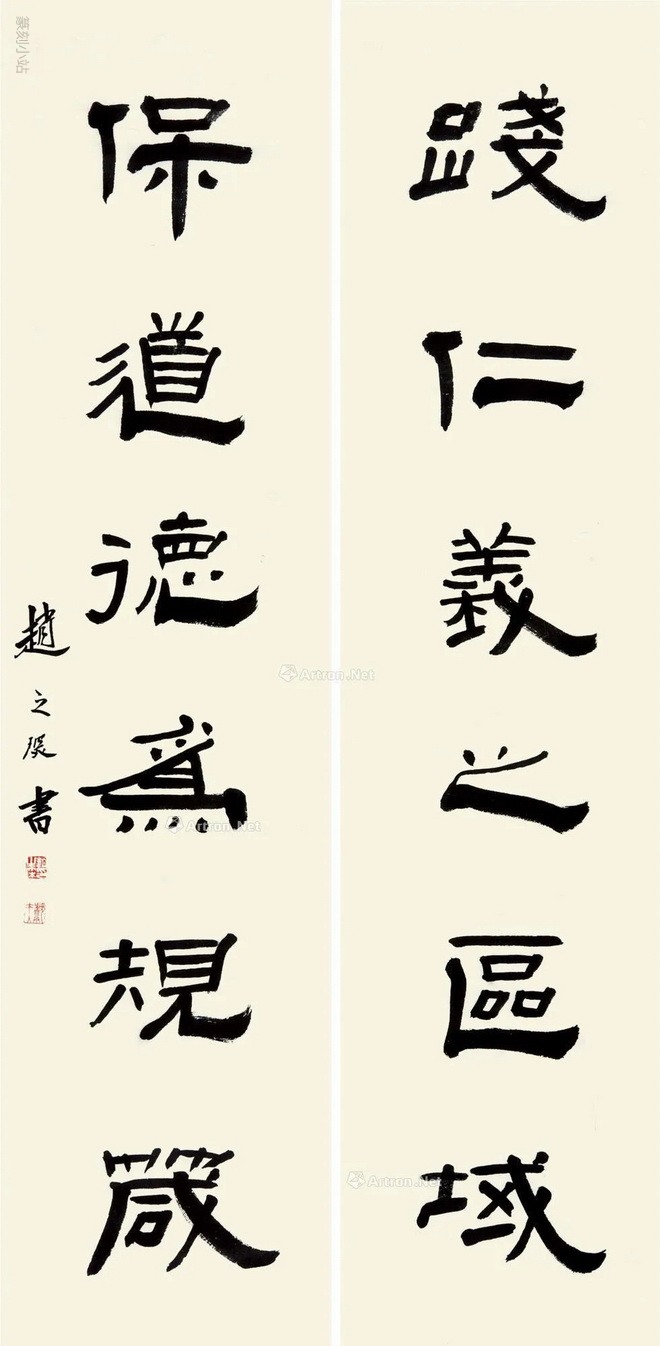 踐仁義之區域
保道德爲規箴
趙之琛書
篆刻小站
Artron.Net
Artron.Net
Artron.Net